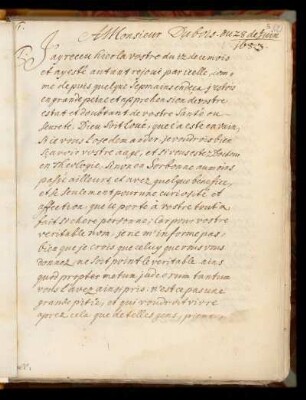 A Monsieur Dubois. du 28 de Juin
1653
J'ay receu hier la vostre du 12 de ce mois
et ay esté autant resjoui par icelle, com¬
me depuis quelques sepmaines en deça j'estois
en grande peine et apprehension de vostre
estat et doubtant de vostre santé ou
seureté. Dieu soit loué, que ç'a esté en vain,
Si je vous l'ose demander, je voudrois bien
sçavoir vostre aage, et si vous estez Docteur
en Theologie, sinon en Sorbonne au moins
passé ailleurs et avez quelque benefice,
et le seulement pour une curiosité et
affection, que je porte à vostre tout à
fait si chere personne; car pour vostre
veritable nom, je ne m'informe pas:
bien que je crois que celuy que vous vous
donnez, ne soit point le veritable ains
quod propter metum judæorum tantum
vous l'avez ainsi pris. n'est ce pas une
grande pitié, et qui voudroit vivre
aprez cela que de telles gens,